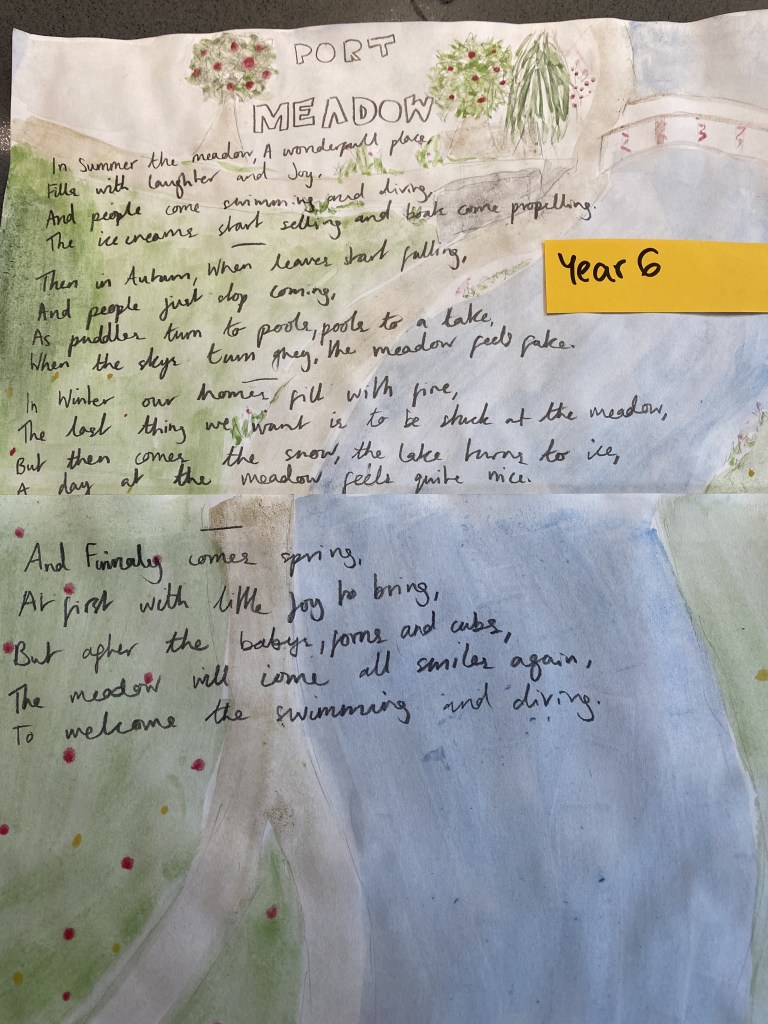 PORT
MEADOW
In Summer the meadow, A wonderfull place,
Fills with laughter and Joy.
And people come swimming and diving,
The icecreams start selling and boats come propelling.
Year 6
Then in Autumn, When leaves start falling,
And people just stop coming,
As puddles turn to pools, pools to a lake,
When the skys turn grey, the meadow feels fake.
In Winter our homes fill with fire,
The last thing we want is to be stuck at the meadow,
But then comes the snow, the lake turns to ice,
A day at the meadow feels quite nice.
And Finnaley comes spring,
At first with little Joy to bring,
But after the babys, forns and cubs,
The meadow will come all smiles again,
To welcome the swimming and diving.